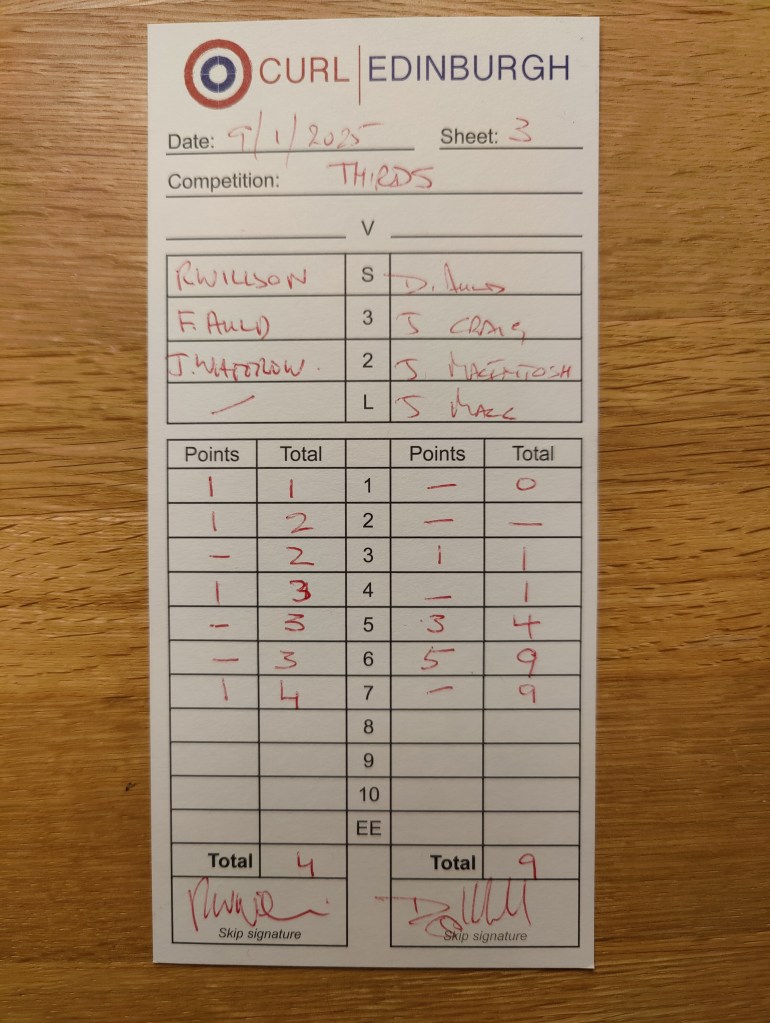 CURL EDINBURGH
Date: 9/1/2025 Sheet: 3
Competition: THIRDS
V
R WILLSON S D. AULD
F. AULD 3 J CRAIG
J. 2 J MACKINTOSH
— L J
Points Total Points Total
1 1 1 — 0
1 2 2 — —
— 2 3 1 1
1 3 4 — 1
— 3 5 3 4
— 3 6 5 9
1 4 7 — 9
8
9
10
EE
Total 4 Total 9
Skip signature Skip signature